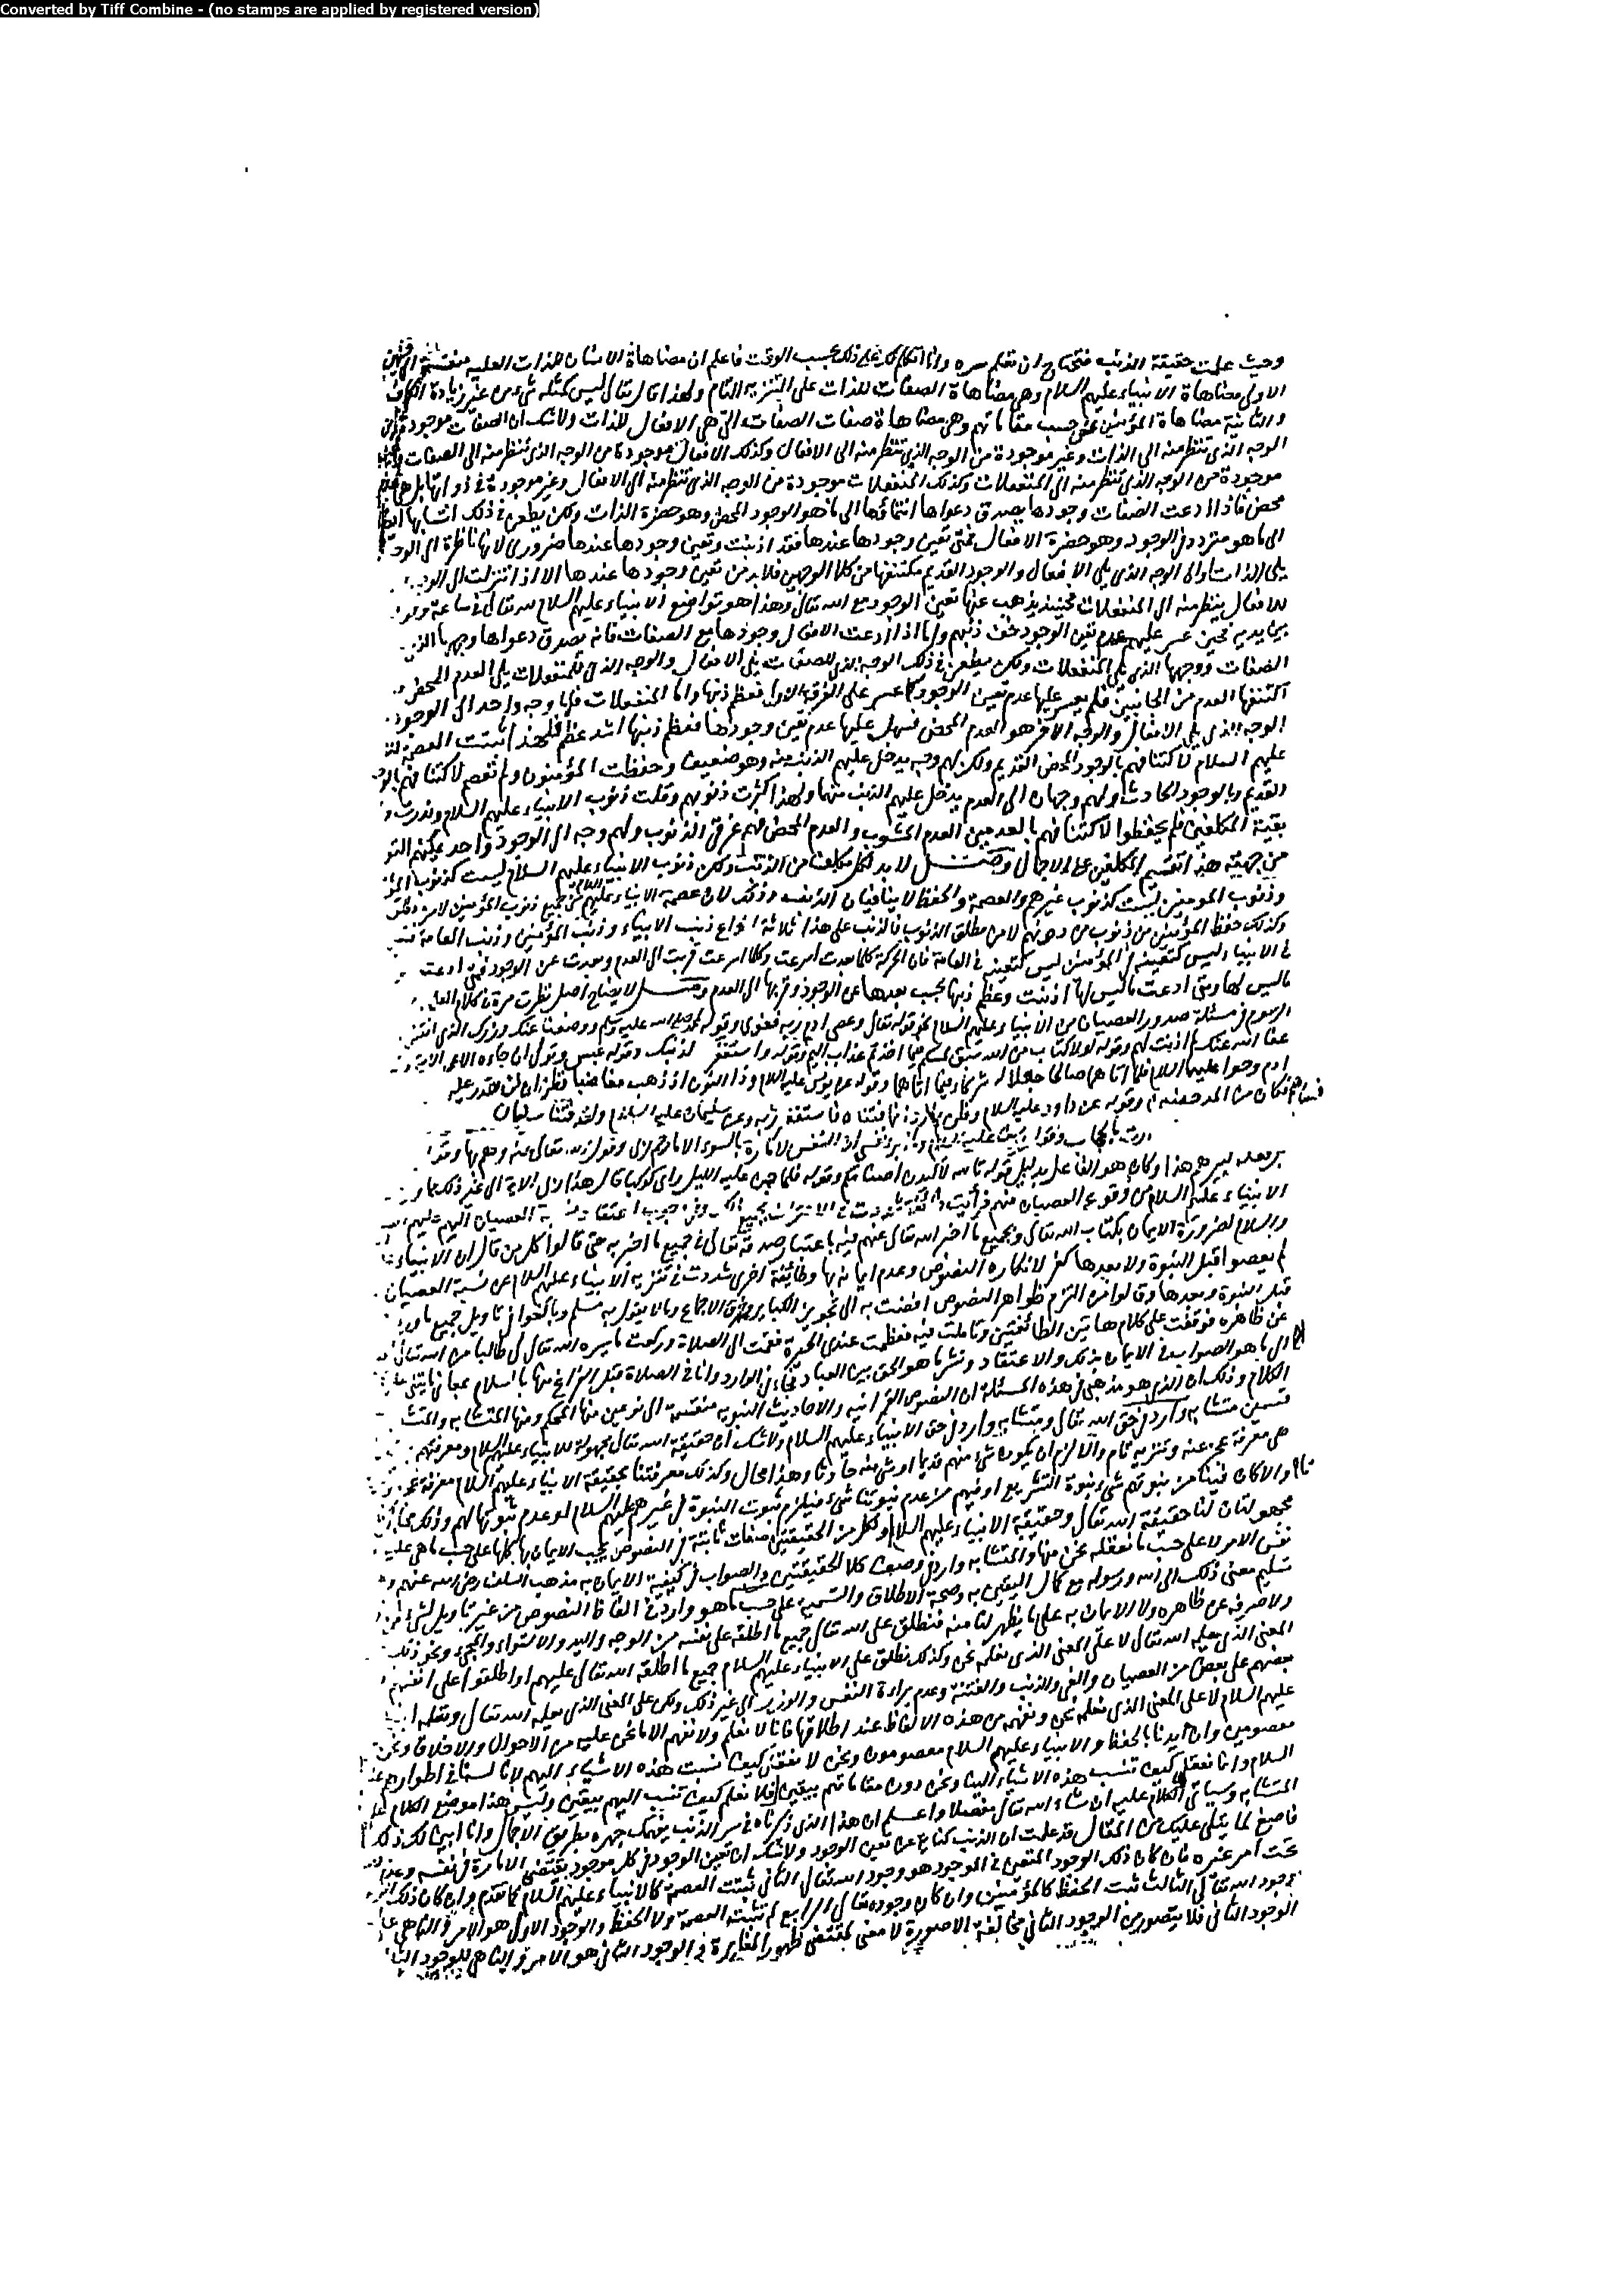 Converted by Tiff Combine - (no stamps are applied by registered version)
وحيث علمت حقيقة الذنب فتحتاج ان تعلم سره وانا اتكلم لك على ذلك بحسب الوقت فاعلم ان مضاهاة الانسان للذات العلية منقسمة الى قسمين
الاولى مضاهاة الانبياء عليهم السلام وهي مضاهاة الصفات للذات على التنزيه التام ولهذا قال تعالى ليس كمثله شيء من غير زيادة الكاف
والثانية مضاهاة المؤمنين على حسب مقاماتهم وهي مضاهاة صفات الصفات التي هي الافعال للذات ولا شك ان الصفات موجودة من
الوجه الذي تنظر منه الى الذات وغير موجودة من الوجه الذي تنظر منه الى الافعال وكذلك الافعال موجودة من الوجه الذي تنظر منه الى الصفات
موجودة من الوجه الذي تنظر منه الى المنفعلات وكذلك المنفعلات موجودة من الوجه الذي تنظر منه الى الافعال وغير موجودة في ذواتها بل هي
محض فاذا ادعت الصفات وجودها يصدق دعواها انتماؤها الى ما هو الوجود المحض وهو حضرة الذات ولكن يطعن في ذلك انتسابها ايضا
الى ما هو متردد في الوجود وهو حضرة الافعال فمتى تعين وجودها عندها فقد اذنبت وتعين وجودها عندها ضروري لانها ناظرة الى
يلي الذات والى الوجه الذي يلي الافعال والوجود القديم مكتنفها من كلا الوجهين فلا بد من تعين وجودها عندها الا اذا تنزلت الى
للافعال ينظر منه الى المنفعلات فحينئذ يذهب عنها تعين الوجود مع الله تعالى وهذا هو تواضع الانبياء عليهم السلام لله تعالى في ساعة
بين يديه فحين عسر عليهم عدم تعين الوجود خف ذنبهم واما اذا ادعت الافعال وجودها مع الصفات فانه يصدق دعواها وجهها الذي
الصفات ووجهها الذي يلي المنفعلات ولكن يطعن في ذلك الوجه الذي للصفات يلي الافعال والوجه الذي للمنفعلات يلي العدم المحض
اكتنفها العدم من الجانبين فلم يعسر عليها عدم تعين الوجود كما عسر على الفرقة الاولى فعظم ذنبها واما المنفعلات فلها وجه واحد الى الوجود
الوجه الذي يلي الافعال والوجه الاخر هو العدم المحض فسهل عليها عدم تعين وجودها فعظم ذنبها اشد عظم فلهذا اثبتت العصمة
عليهم السلام لاكتنافهم بالوجود المحض القديم ولكن لهم وجه يدخل عليهم الذنب منه وهو ضعيف وحفظت المؤمنون ولم تعصم لاكتنافهم
القديم وبالوجود الحادث ولهم وجهان الى العدم يدخل عليهم الذنب منهما ولهذا كثرت ذنوبهم وقلت ذنوب الانبياء عليهم السلام وندرت
بقية المكلفين فلم يحفظوا لاكتنافهم بالعدمين العدم المشوب والعدم المحض فهم غرقى الذنوب ولهم وجه الى الوجود واحد يمكنهم
من جهته هذا تقسيم المكلفين على الاجمال وصل لا بد لكل مكلف من الذنب ولكن ذنوب الانبياء عليهم السلام ليست كذنوب
وذنوب المؤمنين ليست كذنوب غيرهم والعصمة والحفظ لا ينافيان الذنب وذلك لان عصمة الانبياء عليهم السلام من جميع ذنوب المؤمنين لا من
وكذلك حفظ المؤمنين من ذنوب من دونهم لا من مطلق الذنوب فالذنب على هذا ثلاثة انواع ذنب الانبياء وذنب المؤمنين وذنب العامة
في الانبياء ليس كتعينه في المؤمنين ليس كتعينه في العامة فان الحركة كلما بعدت اسرعت وكلما اسرعت قربت الى العدم وبعدت عن الوجود فمتى ادعت
ما ليس لها ومتى ادعت ما ليس لها اذنبت وعظم ذنبها بحسب بعدها عن الوجود وقربها الى العدم وصل لايضاح اصل نظرت مرة في كلام
الرسوم في مسئلة صدور العصيان من الانبياء عليهم السلام نحو قوله تعالى وعصى ادم ربه فغوى وقوله لمحمد صلى الله عليه وسلم ووضعنا عنك وزرك الذي انقض
عفا الله عنك لم اذنت لهم وقوله لولا كتاب من الله سبق لمسكم فيما اخذتم عذاب اليم وقوله واستغفر لذنبك وقوله عبس وتولى ان جاءه الاعمى الاية
ادم وحوا عليهما السلام فلما اتاهما صالحا جعلا له شركاء فيما اتاهما وقوله عن يونس عليه السلام وذا النون اذ ذهب مغاضبا فظن ان لن نقدر عليه
فساهم فكان من المدحضين وقوله عن داود عليه السلام وظن داود انما فتناه فاستغفر ربه وعن سليمان عليه السلام ولقد فتنا سليمان
بالحجاب وقول يوسف عليه السلام وما ابرئ نفسي ان النفس لامارة بالسوء الا ما رحم ربي وقول الله تعالى عنه وهم بها
بل فعله كبيرهم هذا وكان هو الفاعل بدليل قوله تالله لاكيدن اصنامكم وقوله فلما جن عليه الليل راى كوكبا قال هذا ربي الاية الى غير ذلك مما ورد
الانبياء عليهم السلام من وقوع العصيان منهم فرأيت طائفة شددت في الاعتراف بجميع ذلك وفي وجوب اعتقاد نسبة العصيان اليهم عليهم
والسلام لضرورة الايمان بكتاب الله تعالى وبجميع ما اخبر الله تعالى عنهم فيه باعتبار صدقه تعالى في جميع ما اخبر به حتى قالوا كل من قال ان الانبياء
لم يعصوا قبل النبوة ولا بعدها كفر لانكاره النصوص وعدم ايمانه بها وطائفة اخرى شددت في تنزيه الانبياء عليهم السلام عن نسبة العصيان
قبل النبوة وبعدها وقالوا من التزم ظواهر النصوص افضت به الى تجويز الكبائر وخرق الاجماع وما لا يقول به مسلم وبالغوا في تاويل جميع ما ورد
عن ظاهره فوقفت على كلام هاتين الطائفتين وتاملت فيه فعظمت عندي الحيرة فقمت الى الصلاة وركعت ما يسره الله تعالى لي طالبا من الله تعالى
الى ما هو الصواب في الايمان بذلك والاعتقاد ونشر ما هو الحق بين العباد فجاءني الوارد وانا في الصلاة قبل الفراغ منها بالسلام
الكلام وذلك ان الذي هو مذهبي في هذه المسئلة ان النصوص القرآنية والاحاديث النبوية منقسمة الى نوعين منها المحكم ومنها المتشابه والمتشابه
قسمين متشابه وارد في حق الله تعالى ومتشابه وارد في حق الانبياء عليهم السلام ولا شك ان حقيقة الله تعالى مجهولة للانبياء عليهم السلام ومعرفتهم
هي معرفة عجز عنه وتنزيه تام والا لزم ان يكون شيء منهم قديما او شيء منه حادثا وهذا محال وكذلك معرفتنا بحقيقة الانبياء عليهم السلام معرفة عجز
تام والا لكان فينا من نبوتهم شيء نبوة التشريع او فيهم من عدم نبوتنا شيء فيلزم ثبوت النبوة في غيرهم عليهم السلام او عدم ثبوتها لهم وذلك
مجهولتان لنا حقيقة الله تعالى وحقيقة الانبياء عليهم السلام ولكل من الحقيقتين صفات ثابتة في النصوص يجب الايمان بها كلها على حسب ما هي عليه
نفس الامر لا على حسب ما نعقله نحن منها والمتشابه وارد في وصف كلا الحقيقتين والصواب في كيفية الايمان به مذهب السلف رضي الله عنهم
تسليم معنى ذلك الى الله ورسوله مع كمال اليقين به وصحة الاطلاق والتسمية على حسب ما هو وارد في الفاظ النصوص من غير تاويل لشيء
ولا صرفه عن ظاهره ولا الايمان به على ما يظهر لنا منه فنطلق على الله تعالى جميع ما اطلقه على نفسه من الوجه واليد والاستواء والمجيء ونحو ذلك
المعنى الذي يعلمه الله تعالى لا على المعنى الذي نعلمه نحن وكذلك نطلق على الانبياء عليهم السلام جميع ما اطلقه الله تعالى عليهم او اطلقوا على انفسهم
بعضهم على بعض من العصيان والغي والذنب والفتنة وعدم براءة النفس والوزر الى غير ذلك ولكن على المعنى الذي يعلمه الله تعالى وتعلمه
عليهم السلام لا على المعنى الذي نعلمه نحن ونفهمه من هذه الالفاظ عند اطلاقها فانا لا نعلم ولا نفهم الا ما نحن عليه من الاحوال والاخلاق ونحن
معصومين وان ايدنا بالحفظ والانبياء عليهم السلام معصومون ونحن لا نعقل كيف نسبت هذه الاشياء اليهم لانا لسنا في اطوارهم
السلام وانا نعقل كيف تنسب هذه الاشياء الينا ونحن دون مقاماتهم بيقين فلا نعلم كيف تنسب اليهم بيقين وليس هذا موضع الكلام على
المتشابه وسياتي الكلام عليه ان شاء الله تعالى مفصلا واعلم ان هذا الذي ذكرناه في سر الذنب يفهمك جهره بطريق الاجمال وانا ابين لك ذلك
فاصغ لما يتلى عليك من المقال قد علمت ان الذنب كناية عن تعين الوجود ولا شك ان تعين الوجود في كل موجود يقتضي الامارة في نفسه
تحت امر غيره فان كان ذلك الوجود المتعين في الموجود هو وجود الله تعالى الثاني ثبتت العصمة كالانبياء عليهم السلام كما تقدم وان كان ذلك
وجود الله تعالى الثالث ثبت الحفظ كالمؤمنين وان كان وجوده تعالى الرابع لم تثبت العصمة ولا الحفظ والوجود الاول هو الامر والناهي
الوجود الثاني فلا يتصور من الوجود الثاني مخالفة الا صورة لا معنى لمقتضى ظهور المغايرة في الوجود الثاني هو الامر والناهي للوجود